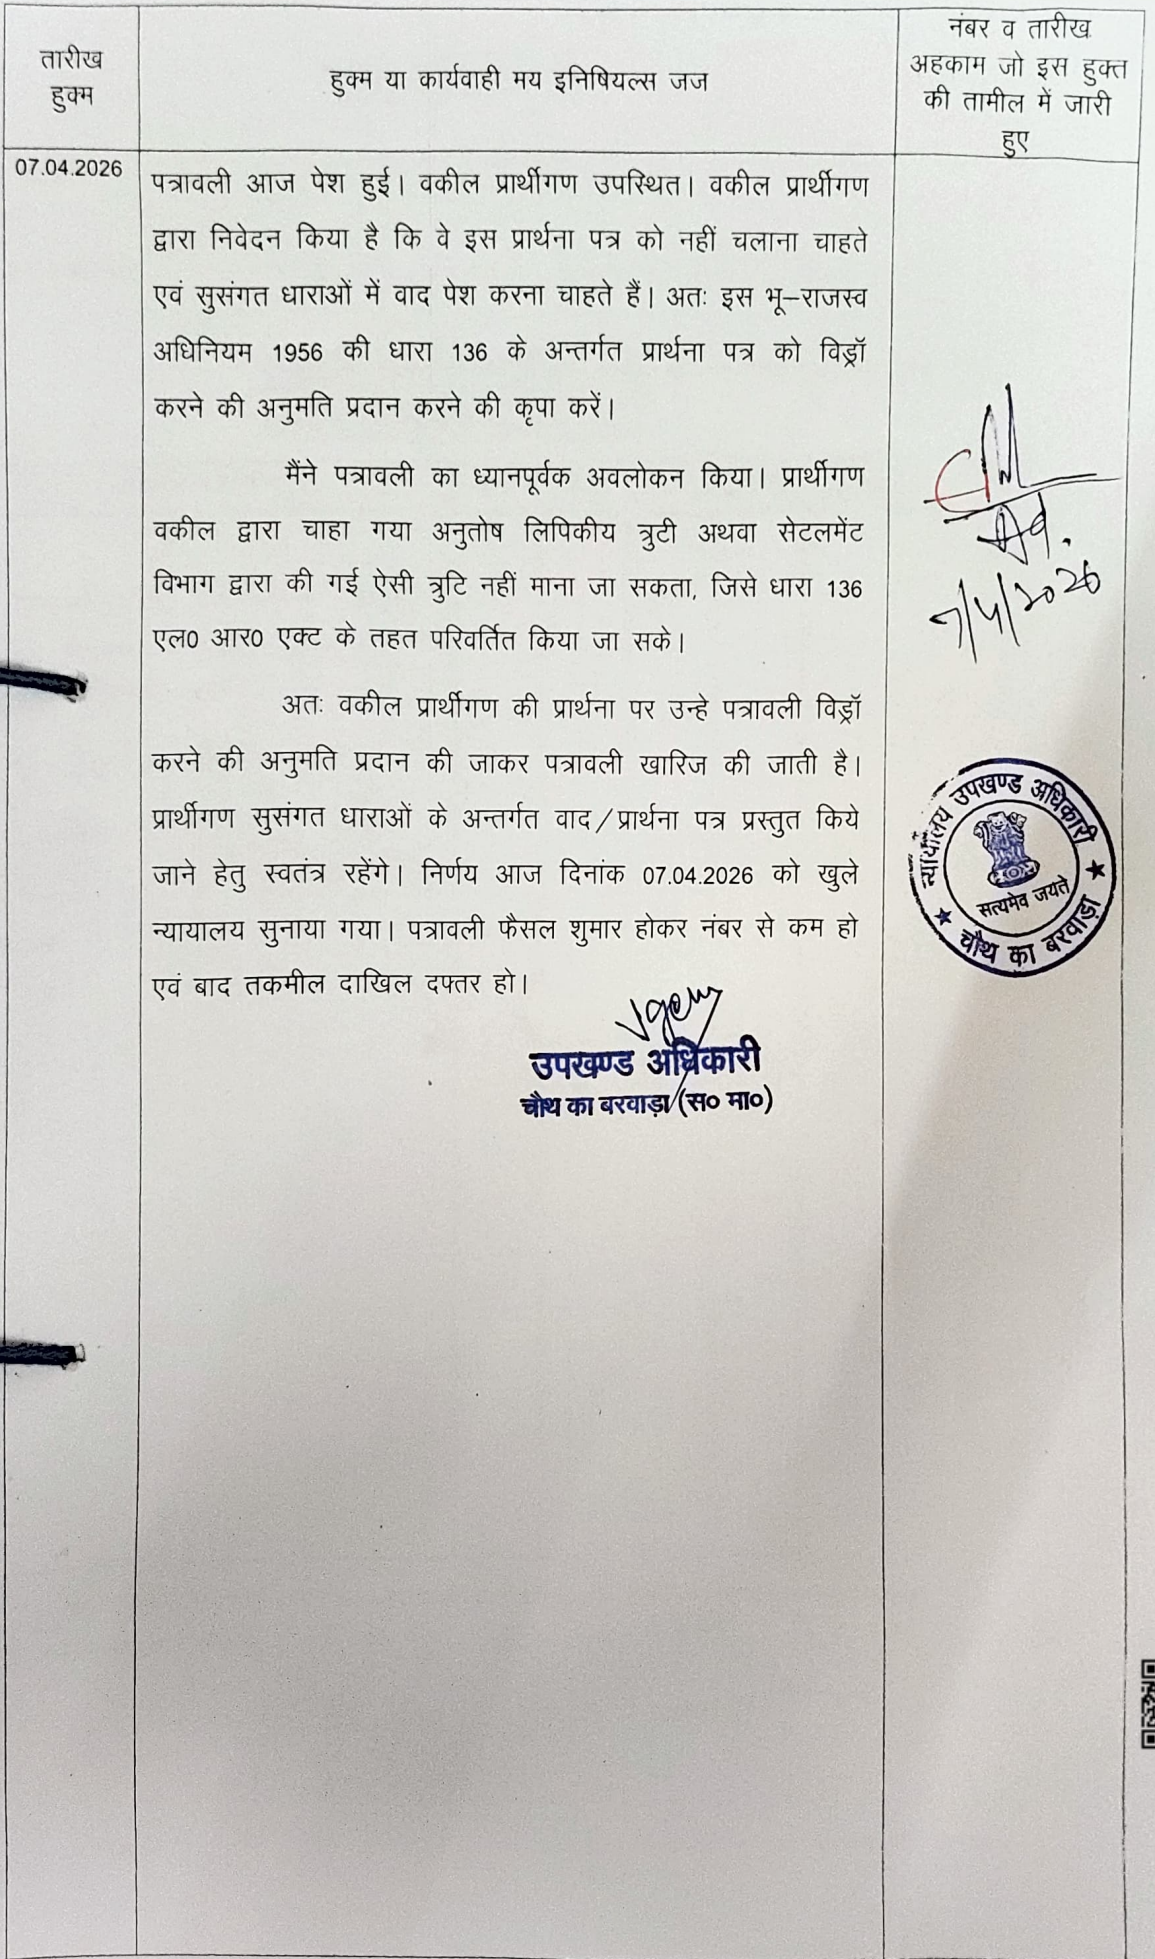 तारीख
हुक्म
हुक्म या कार्यवाही मय इनिषियल्स जज
नंबर व तारीख
अहकाम जो इस हुक्त
की तामील में जारी
हुए
07.04.2026
पत्रावली आज पेश हुई। वकील प्रार्थीगण उपस्थित। वकील प्रार्थीगण
द्वारा निवेदन किया है कि वे इस प्रार्थना पत्र को नहीं चलाना चाहते
एवं सुसंगत धाराओं में वाद पेश करना चाहते हैं। अतः इस भू–राजस्व
अधिनियम 1956 की धारा 136 के अन्तर्गत प्रार्थना पत्र को विड्रॉ
करने की अनुमति प्रदान करने की कृपा करें।
मैंने पत्रावली का ध्यानपूर्वक अवलोकन किया। प्रार्थीगण
वकील द्वारा चाहा गया अनुतोष लिपिकीय त्रुटी अथवा सेटलमेंट
विभाग द्वारा की गई ऐसी त्रुटि नहीं माना जा सकता, जिसे धारा 136
एल0 आर0 एक्ट के तहत परिवर्तित किया जा सके।
अतः वकील प्रार्थीगण की प्रार्थना पर उन्हे पत्रावली विड्रॉ
करने की अनुमति प्रदान की जाकर पत्रावली खारिज की जाती है।
प्रार्थीगण सुसंगत धाराओं के अन्तर्गत वाद/प्रार्थना पत्र प्रस्तुत किये
जाने हेतु स्वतंत्र रहेंगे। निर्णय आज दिनांक 07.04.2026 को खुले
न्यायालय सुनाया गया। पत्रावली फैसल शुमार होकर नंबर से कम हो
एवं बाद तकमील दाखिल दफ्तर हो।
उपखण्ड अधिकारी
चौथ का बरवाड़ा (स० मा०)
7/4/2026
न्यायालय उपखण्ड अधिकारी
सत्यमेव जयते
★ चौथ का बरवाड़ा ★